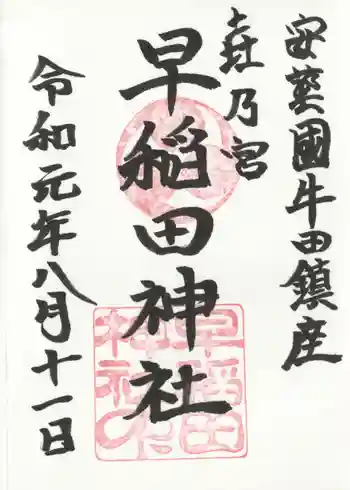 安藝國牛田鎮座
㐂乃宮
早稲田神社
令和元年八月十一日
早稲田
神社之印